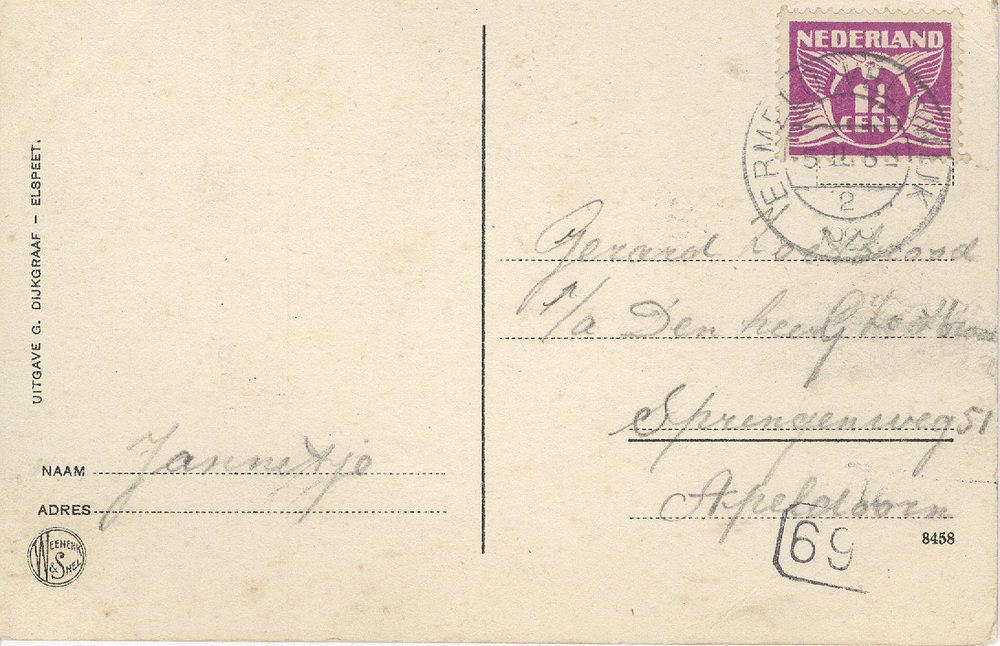 UITGAVE G. DIJKGRAAF – ELSPEET.
NEDERLAND
1½
CENT
2
Gerard
Den heer G
Sprengenweg 51
Apeldoorn
NAAM Jannetje
ADRES
WEENENK
& SNEL
8458
69